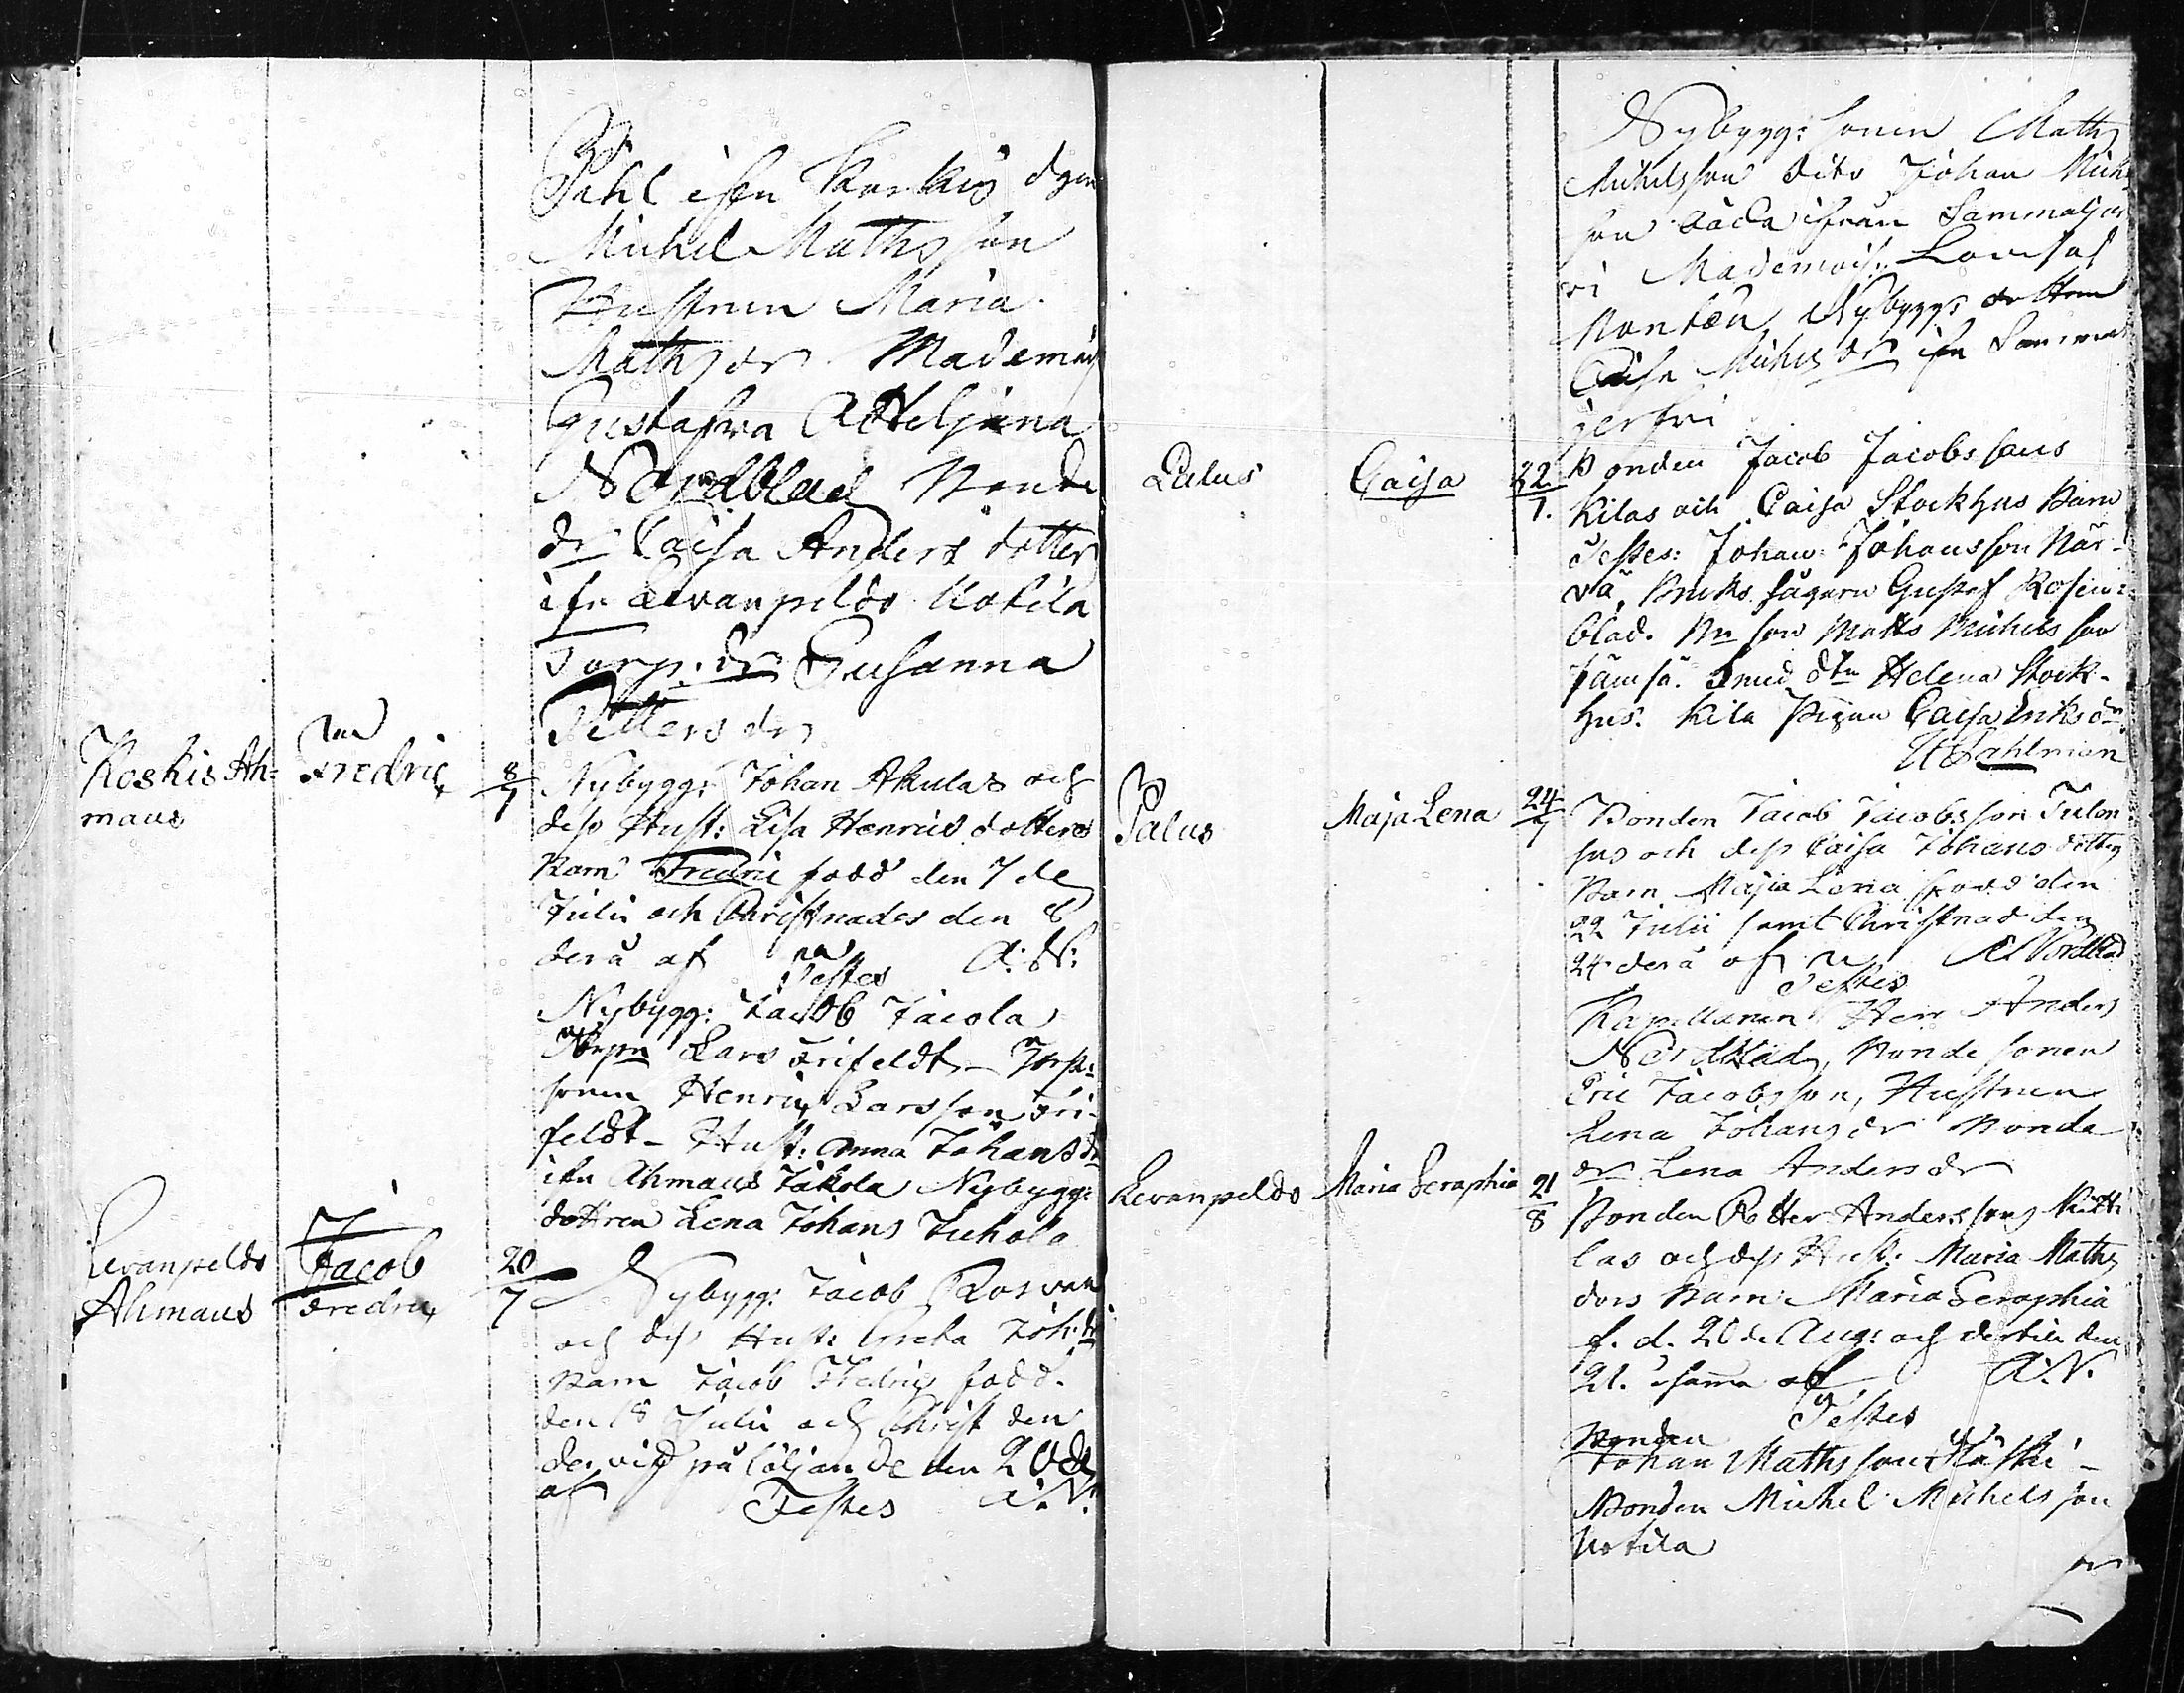 Pihl ifrn Karkus dgn
Michel Mathsson
Hustrun Maria
Mathsdr Mademois
Gustafva Atteljana
Nordblad Bonde
dr Caisa Anders dotter
ifn Levanpeldo Uotila
Torp: dr Susanna
Petters dr
Koskis Ah=
maus
Fredric
8/7
Nybygg: Johan Akulas och
dess Hust: Lisa Henrics dotters
Barn Fredric född den 7 de
Julii och Christnades den 8
derå af A: N:
Testes
Nybygg: Jacob Jacola
Lars Frifeldt - Torp:
sonen Henric Larsson Fri-
feldt - Hust: Anna Johans dr
ifn Ahmaus Jakola Nybygg:
dottren Lena Johans Juhola
Levanpeldo
Ahmaus
Jacob
Fredric
20/7
Nybygg: Jacob Rosvan
och dess Hust: Greta Joh: dr
Barn Jacob Fredric född
den 18 Julii och Christ den
der vid på följande den 20 de
af A: N:
Testes
Nybygg: sonen Maths
Michelsson dito Johan Mich
son båda ifrån Sammaljer
vi Mademois: Lovisa
Montin Nybygg: dottren
Caisa Michels dr ifn Sammal
jerfvi
Palus
Caisa
22/7.
Bonden Jacob Jacobssons
Kilas och Caisa Stockhus Barn
Testes: Johan Johansson När-
vä, Bruks sågaren Gustaf Rosen=
blad. Bn son Matts Michels son
Jämsä. Smed dtn Helena Stock-
hus. Kila Pigan Caisa Eriks dr
Sahlman
Palus
Maja Lena
24/7
Bonden Jacob Jacobsson Tulon
sus och dess Caisa Johans dotters
Barn Maja Lena född den
22 Julii samt Christnad den
24 derå af A Nordblad
Testes
Kapellanen Herr Anders
Nordblad, Bonde sonen
Eric Jacobsson, Hustrun
Lena Johans dr Bonde
dr Lena Anders dr
Levanpeldo
Maria Seraphia
21/8
Bonden Petter Anderssons
las och dess Hust: Maria Maths
dors Barn: Maria Seraphia
f. d. 20 de Aug: och dertill den
21. samma af A: N.
Testes
Bonden
Johan Mathsson Kåski -
Bonden Michel Michelsson
Uotila